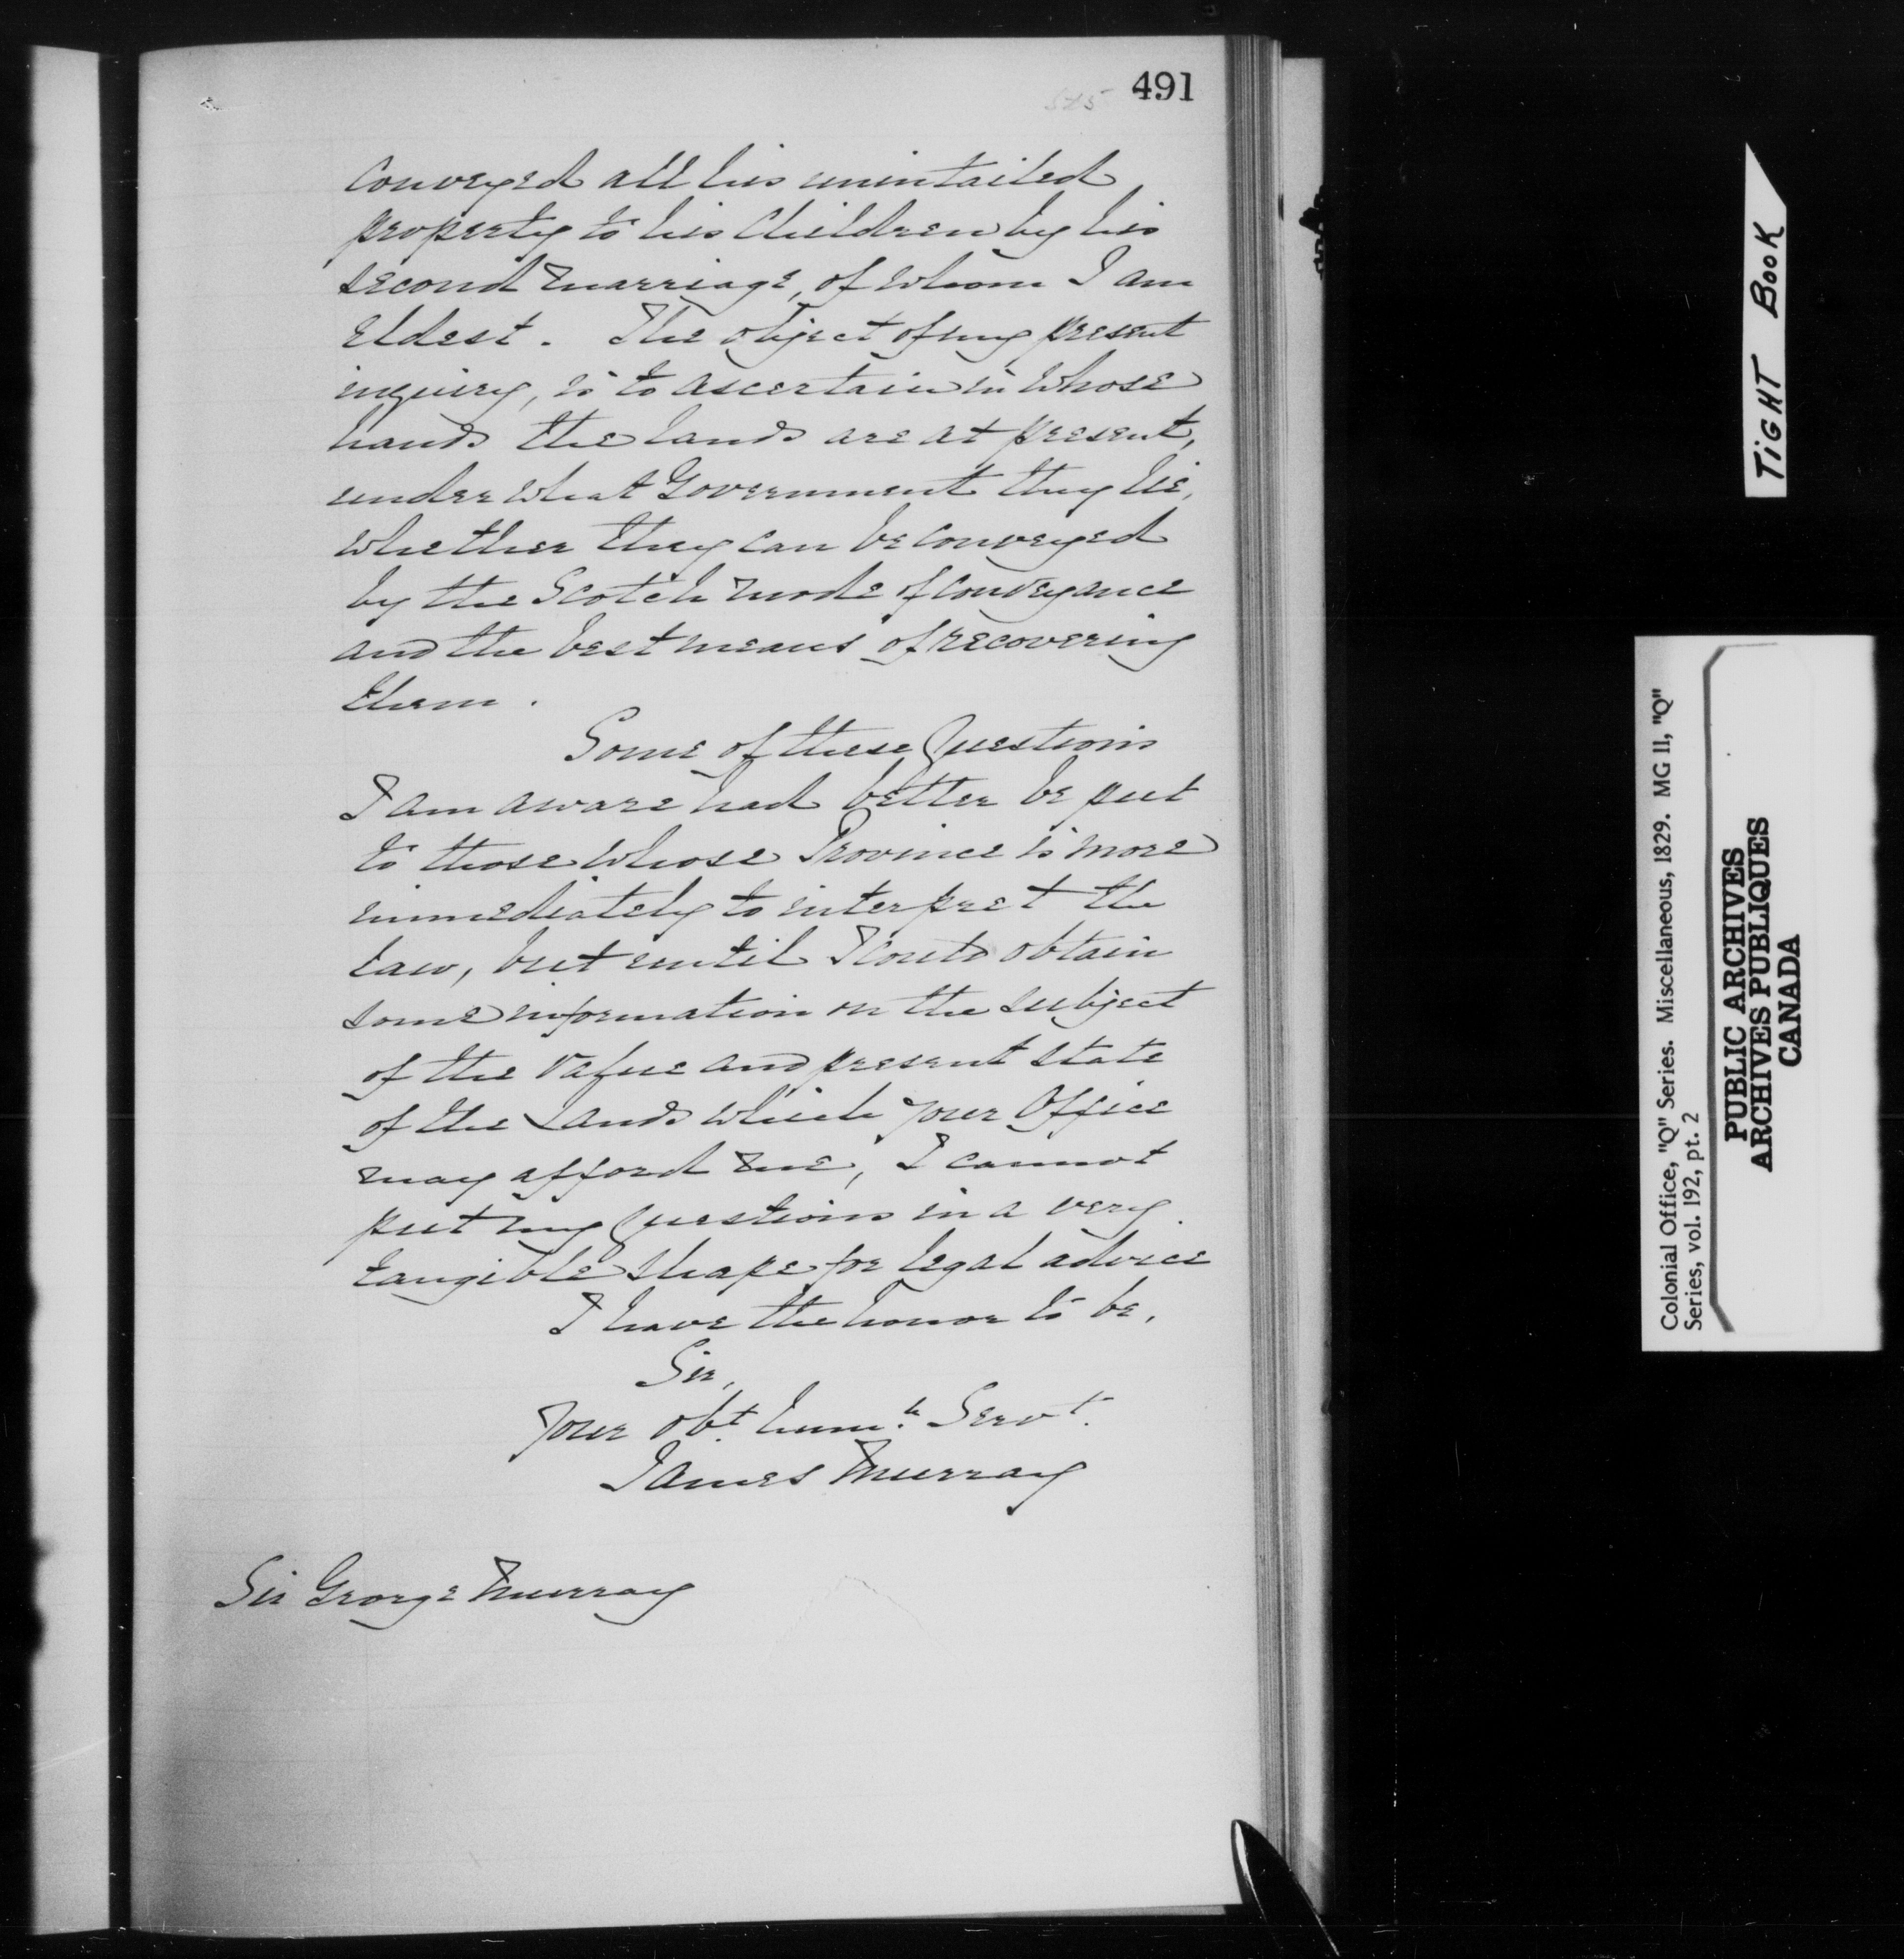 491
525
conveyed all his unintailed
property to his Children by his
second marriage, of whom I am
Eldest. The object of my present
inquiry, is to ascertain in whose
hands the lands are at present,
under what Government they lie,
whether they can be conveyed
by the Scotch mode of conveyance
and the best means of recovering
them.
Some of these Questions
I am aware had better be put
to those whose Province is more
immediately to interpret the
law, but until I could obtain
some information on the subject
of the value and present state
of the Lands which your Office
may afford me, I cannot
put my Questions in a very
tangible shape for legal advice
I have the honor to be,
Sir,
Your obt. humh. Servt.
James Murray
Sir George Murray
TIGHT BOOK
Colonial Office, "Q" Series. Miscellaneous, 1829. MG 11, "Q"
Series, vol. 192, pt. 2
PUBLIC ARCHIVES
ARCHIVES PUBLIQUES
CANADA